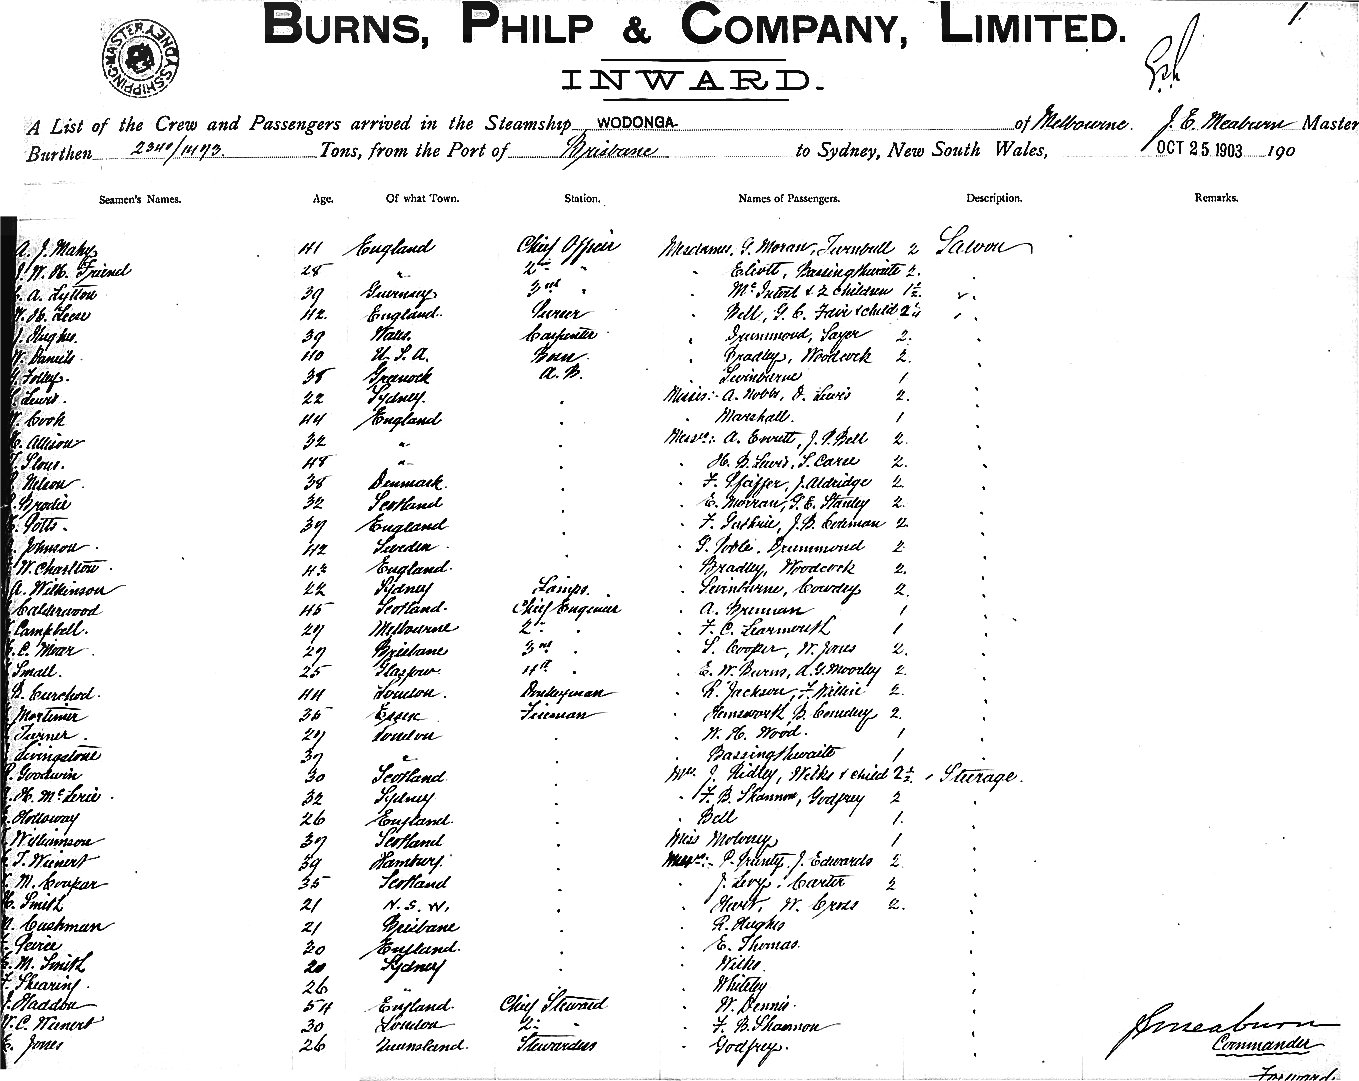 BURNS, PHILP & COMPANY, LIMITED.
1.
INWARD.
A List of the Crew and Passengers arrived in the Steamship WODONGA of Melbourne. J. E. Meaburn Master
Burthen 2341/1473. Tons, from the Port of Brisbane to Sydney, New South Wales, OCT 25 1903 190
Seamen's Names. Age. Of what Town. Station. Names of Passengers. Description. Remarks.
A. J. Mahy 41 England Chief Officer Mesdames, G. Moran, Turnbull 2 Saloon
J. W. H. Friend 28 " 2nd " Eliott, Bassingthwaite 2.
A. Lytton 39 Guernsey 3rd " & 2 children 1½
H. Leese 42 England Purser Bell, G. C. Fair & child 2½
J. Hughes. 39 Wales. Carpenter Drummond, Sayer 2.
W. Daniels 40 U. S. A. Bosn. Bradley, Woodcock 2.
Folley. 38 Granock A. B. Swinburne 1
Lewis. 22 Sydney. Misses:- A. Noble, D. Lewis 2.
Cook 44 England Marshall. 1
Allison 32 " Messrs:- A. Everett, J. P. Bell 2.
48 " H. B. Lewis, S. Carse 2.
Nelson. 38 Denmark. F. Pfeiffer, J. Aldridge 2.
Brodie 32 Scotland E. Morran, G. E. Stanley 2.
Potts. 37 England F. Guthrie, J. B. Coleman 2.
Johnson. 42 Sweden Poole, Drummond 2.
W. Charlton. 43 England. Bradley, Woodcock 2.
A. Wilkinson 22 Sydney Lamps. Swinburne, Cowdey 2.
Calderwood 45 Scotland. Chief Engineer A. Brennan 1
Campbell. 27 Melbourne 2nd " F. C. Learmouth 1
C. Moar. 27 Brisbane 3rd " S. Cooper, W. Jones 2.
Small. 25 Glasgow 4th " E. W. Burns, A. G. Moorley 2.
Curchod. 44 London. Donkeyman R. Jackson, F. Willie 2.
Mortimer 35 Essex Fireman Hemsworth, B. 2.
Turner. 27 London W. H. Wood. 1
Livingstone 37 " Bassingthwaite 1.
Goodwin 30 Scotland Mrs. J. Ridley, Wilks & child 2½ Steerage.
H. McLerie. 32 Sydney F. B. Shannon, Godfrey 2
Holloway 26 England. Bell 1.
Williamson 37 Scotland Miss Moloney 1
T. Wienert 39 Hamburg. Messrs:- P. Prunty, J. Edwards 2
M. Coupar 35 Scotland J. Levy, Carter 2
H. Smith 21 N. S. W. Hart, W. Cross 2.
A. Cushman 21 Brisbane R. Hughes
Peirce 30 England. E. Thomas.
M. Smith 20 Sydney Wilks
F. Shearing. 26 " Whiteley
J. Haddon 54 England Chief Steward W. Dennis.
V. C. Wienert 30 London 2nd " F. B. Shannon
E. Jones 26 Queensland. Stewardess Godfrey.
J E Meaburn
Commander
Forward.